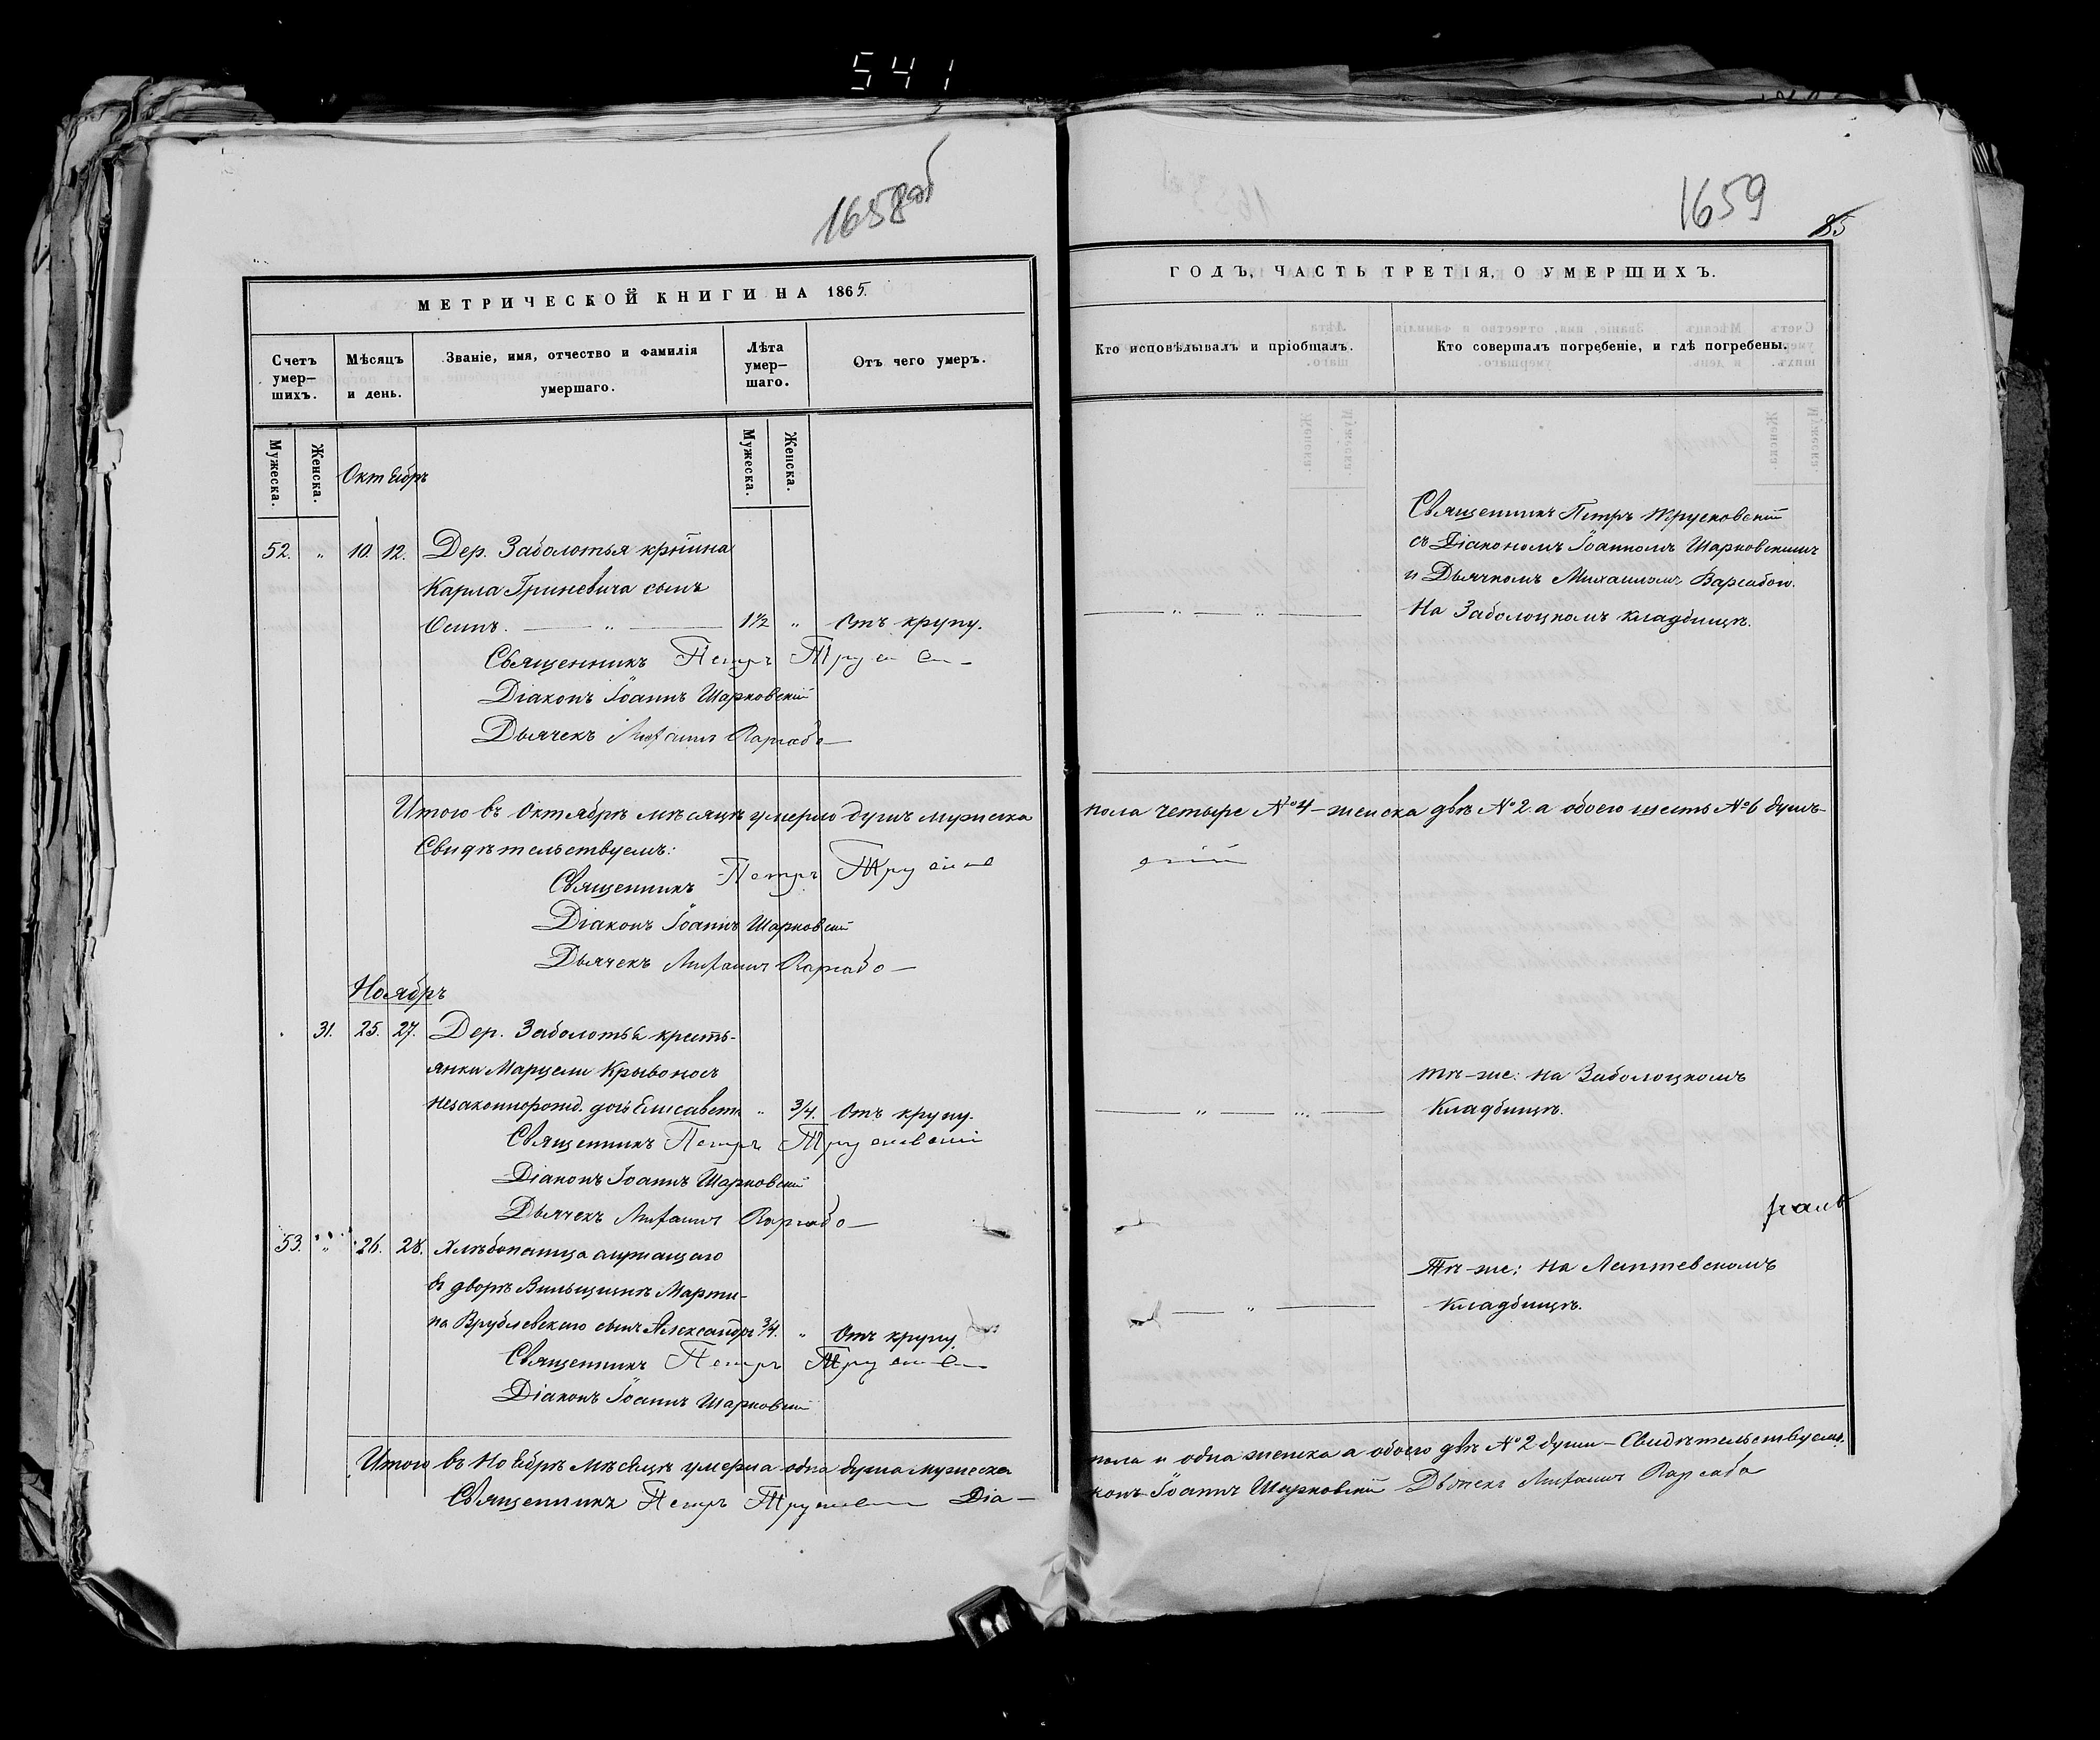 541
1658 об
МЕТРИЧЕСКОЙ КНИГИ НА 1865.
Счетъ умер–шихъ.
Мѣсяцъ и день.
Званіе, имя, отчество и фамилія умершаго.
Лѣта умер–шаго.
Отъ чего умеръ.
Мужеска.
Женска.
Мужеска.
Женска.
Октябрь
52. „ 10. 12. Дер. Заболотья крѣтина
Карла Гриневича сынъ
Осипъ. — „ — 1½ „ Отъ крупу.
Священникъ Петръ
Діаконъ Іоаннъ Шарковскій
Дьячекъ Михаилъ Варсаба
Итого въ Октябрѣ мѣсяцѣ умерло душъ мужеска
Свидѣтельствуемъ:
Священникъ Петръ
Діаконъ Іоаннъ Шарковскій
Дьячекъ Михаилъ Варсаба
Ноябрь
31. 25. 27. Дер. Заболотья кресть-
янки Марцели Кривонось
незаконнорожд. дочь Елисавета „ 3/4. Отъ крупу.
Священникъ Петръ
Діаконъ Іоаннъ Шарковскій
Дьячекъ Михаилъ Варсаба
53. „ 26. 28. Хлѣбопашца служащаго
въ дворѣ Вильщинѣ Марти-
на Врублевскаго сынъ Александръ 3/4. „ Отъ крупу.
Священникъ Петръ
Діаконъ Іоаннъ Шарковскій
Итого въ Ноябрѣ мѣсяцѣ умерла одна душа мужеска
Священникъ Петръ Діа-
1659
85
ГОДЪ, ЧАСТЬ ТРЕТІЯ, О УМЕРШИХЪ.
Кто исповѣдывалъ и пріобщалъ.
Кто совершалъ погребеніе, и гдѣ погребены.
Священникъ Петръ
съ Діакономъ Іоанномъ Шарковскимъ
и Дьячкомъ Михаиломъ Варсабою.
— „ — „ — На Заболоцкомъ кладбищѣ.
пола четыре № 4 – женска двѣ № 2 а обоего шесть № 6 душъ
скій
тѣ-же: на Заболоцкомъ
— „ — „ — кладбищѣ.
Тѣ-же: на Лаптевскомъ
— „ — кладбищѣ.
пола и одна женска а обоего двѣ № 2 души – Свидѣтельствуемъ.
конъ Іоаннъ Шарковскій Дьячекъ Михаилъ Варсаба